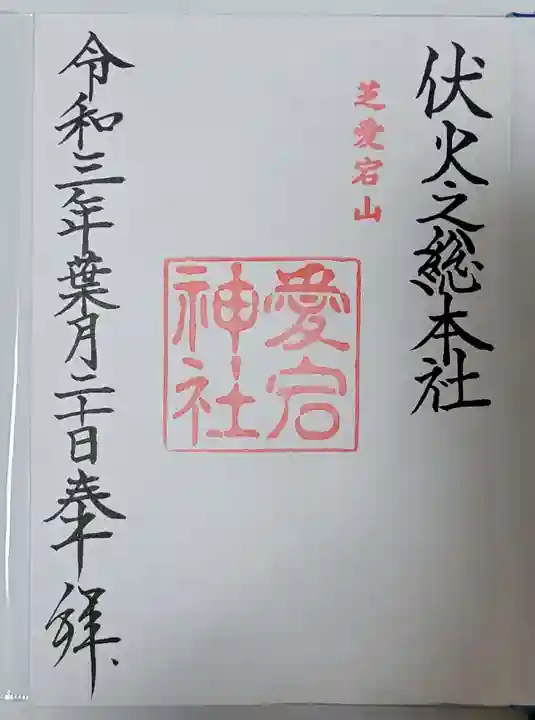 伏火之總本社
芝愛宕山
愛宕
神社
令和三年葉月二十日奉拝